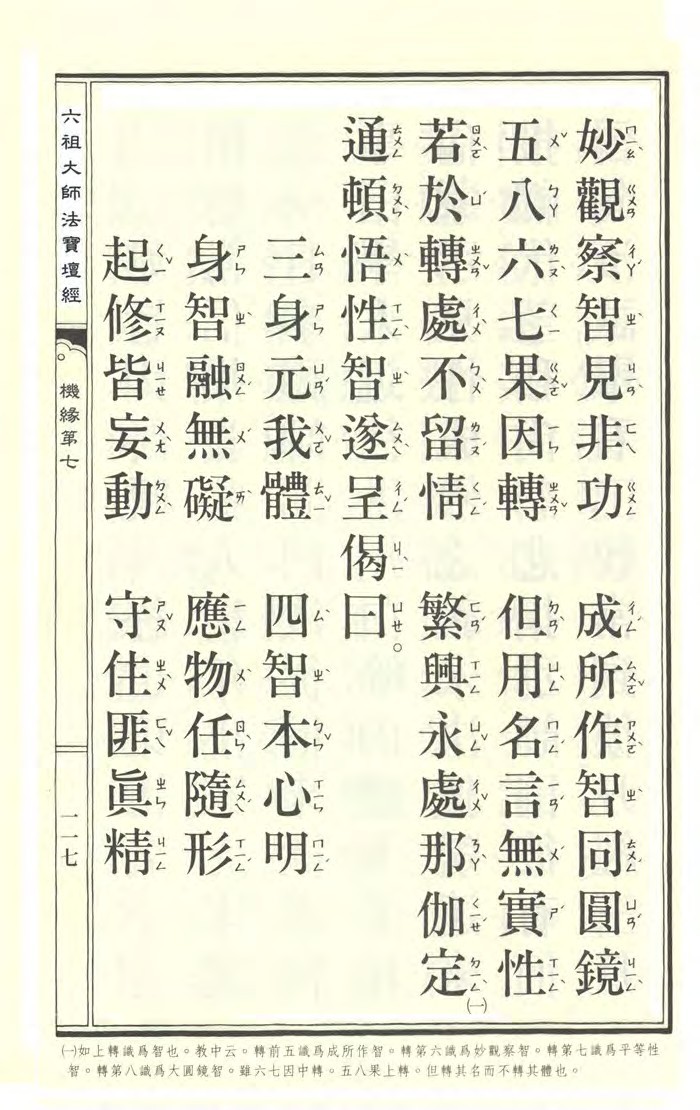 妙觀察智見非功　成所作智同圓鏡
五八六七果因轉　但用名言無實性
若於轉處不留情　繁興永處那伽定㈠
通頓悟性智遂呈偈曰。
三身元我體　四智本心明
身智融無礙　應物任隨形
起修皆妄動　守住匪眞精
六祖大師法寶壇經　機緣第七　一一七
㈠如上轉識爲智也。教中云。轉前五識爲成所作智。轉第六識爲妙觀察智。轉第七識爲平等性
智。轉第八識爲大圓鏡智。雖六七因中轉。五八果上轉。但轉其名而不轉其體也。